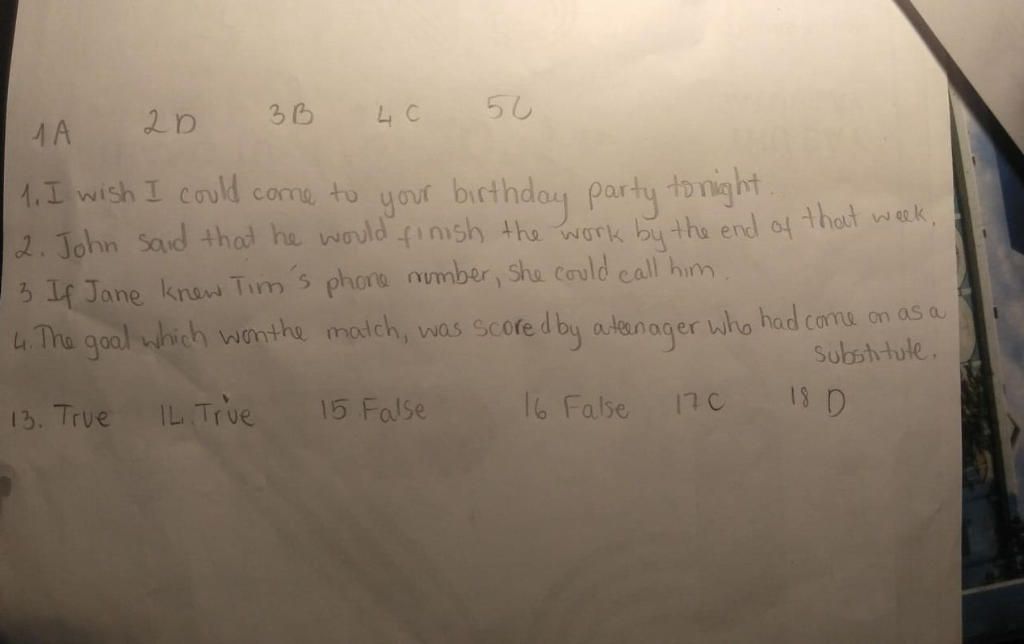 1A 2D 3B 4C 5C
1. I wish I could come to your birthday party tonight.
2. John said that he would finish the work by the end of that week.
3 If Jane knew Tim's phone number, she could call him.
4. The goal which won the match, was scored by a teenager who had come on as a
substitute.
13. True 14. True 15 False 16 False 17C 18 D